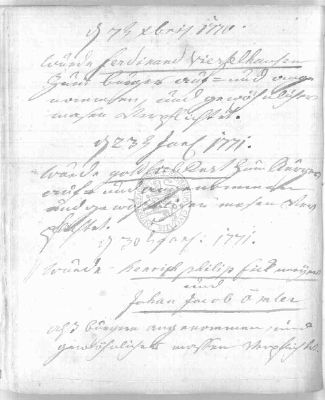 d 7t Xbris 1770.
wurde Ferdinand
zum burger auf- und ange
nommen, und gewöhnlicher
masen verpflichtet.
d 23t Jan. 1771.
wurde gottlieb zum burger
auf- und angenommen
und gewöhnlicher masen ver
pflichtet.
d 30t Jan: 1771.
wurde Henrich philip
und
Johan Jacob Ömler
als burger angenommen und
gewöhnlicher massen verpflichtet.